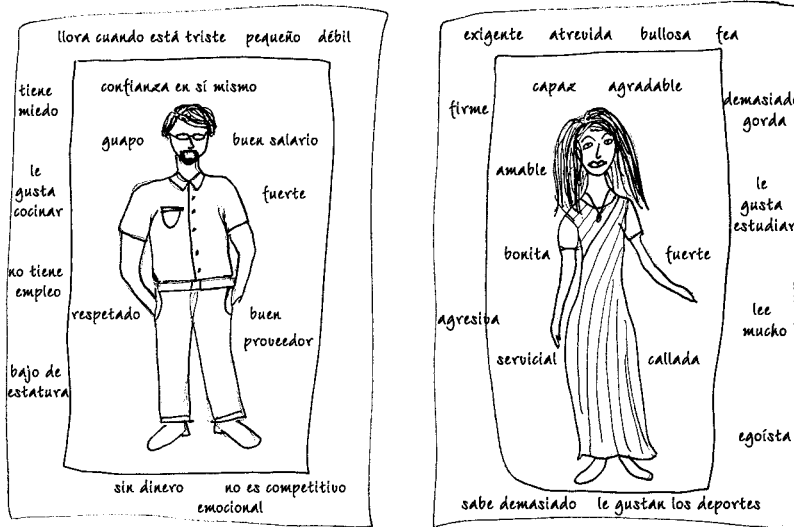 llora cuando está triste pequeño débil
tiene
miedo
le
gusta
cocinar
no tiene
empleo
bajo de
estatura
confianza en sí mismo
guapo
buen salario
fuerte
respetado
buen
proveedor
sin dinero no es competitivo
emocional
exigente atrevida bullosa fea
firme
capaz agradable
demasiado
gorda
amable
le
gusta
estudiar
bonita
fuerte
agresiva
lee
mucho
servicial
callada
egoísta
sabe demasiado le gustan los deportes